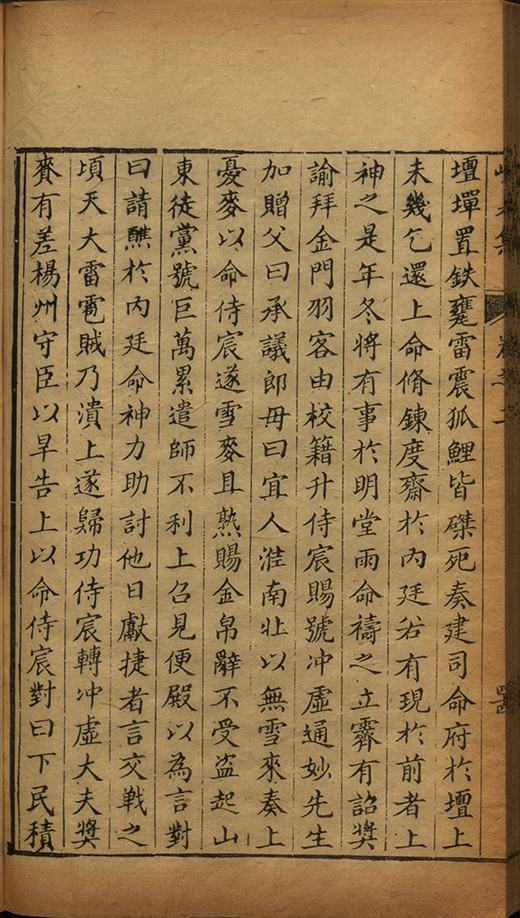 壇墠置鉄甕雷震狐鯉皆磔死奏建司命府於壇上
未幾乞還上命脩鍊度齋於內廷若有現於前者上
神之是年冬將有事於明堂雨命禱之立霽有詔奬
諭拜金門羽客由校籍升侍宸賜號冲虛通妙先生
加贈父曰承議郎毋曰宜人淮南北以無雪來奏上
憂麥以命侍宸遂雪麥且熟賜金帛辭不受盗起山
東徒黨號巨萬累遣師不利上召見便殿以為言對
曰請醮於內廷命神力助討他日獻捷者言交戰之
頃天大雷電賊乃潰上遂歸功侍宸轉冲虛大夫奬
賚有差楊州守臣以旱告上以命侍宸對曰下民積